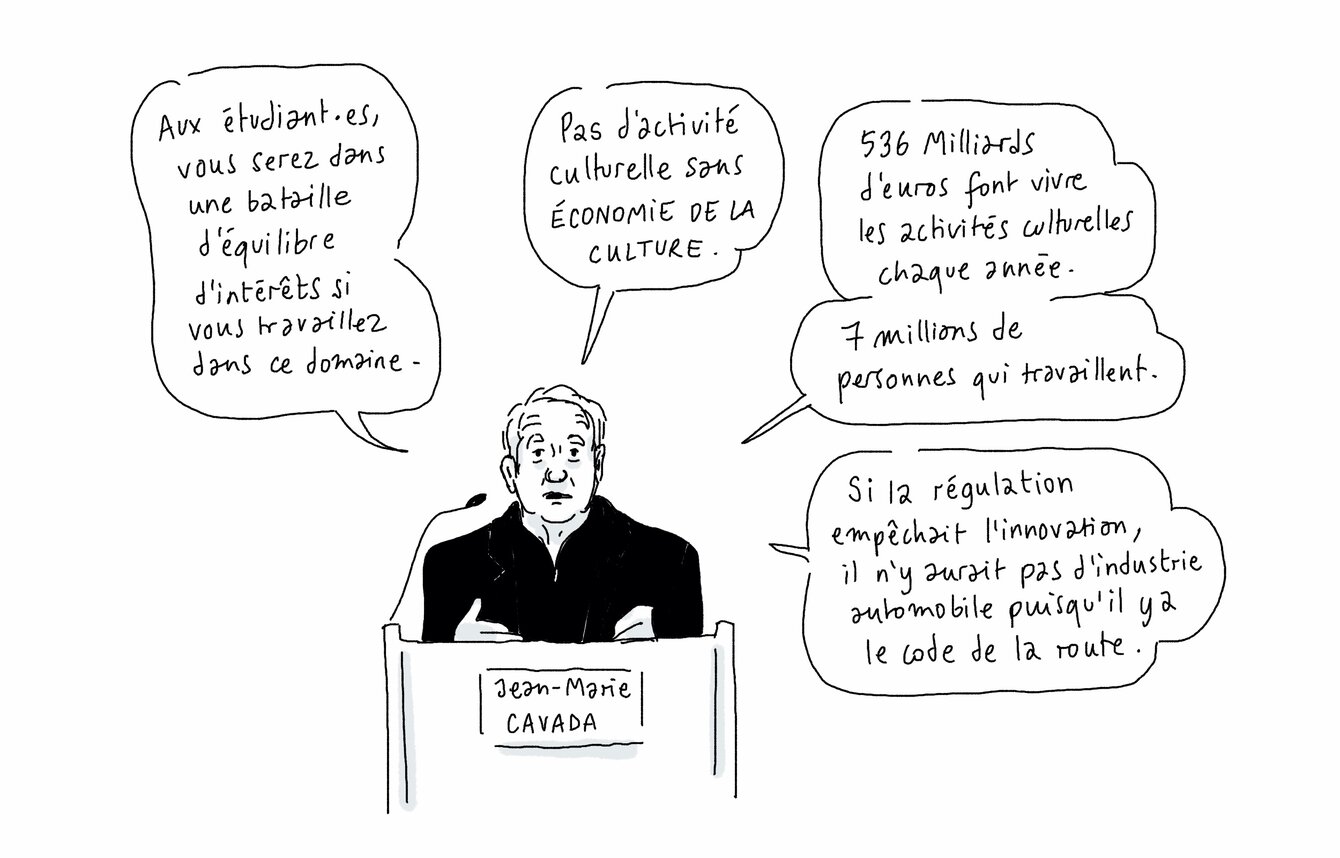 Aux étudiant·es,
vous serez dans
une bataille
d'équilibre
d'intérêts si
vous travaillez
dans ce domaine.
Pas d'activité
culturelle sans
ÉCONOMIE DE LA
CULTURE.
536 Milliards
d'euros font vivre
les activités culturelles
chaque année.
7 millions de
personnes qui travaillent.
Si la régulation
empêchait l'innovation,
il n'y aurait pas d'industrie
automobile puisqu'il y a
le code de la route.
Jean-Marie
CAVADA